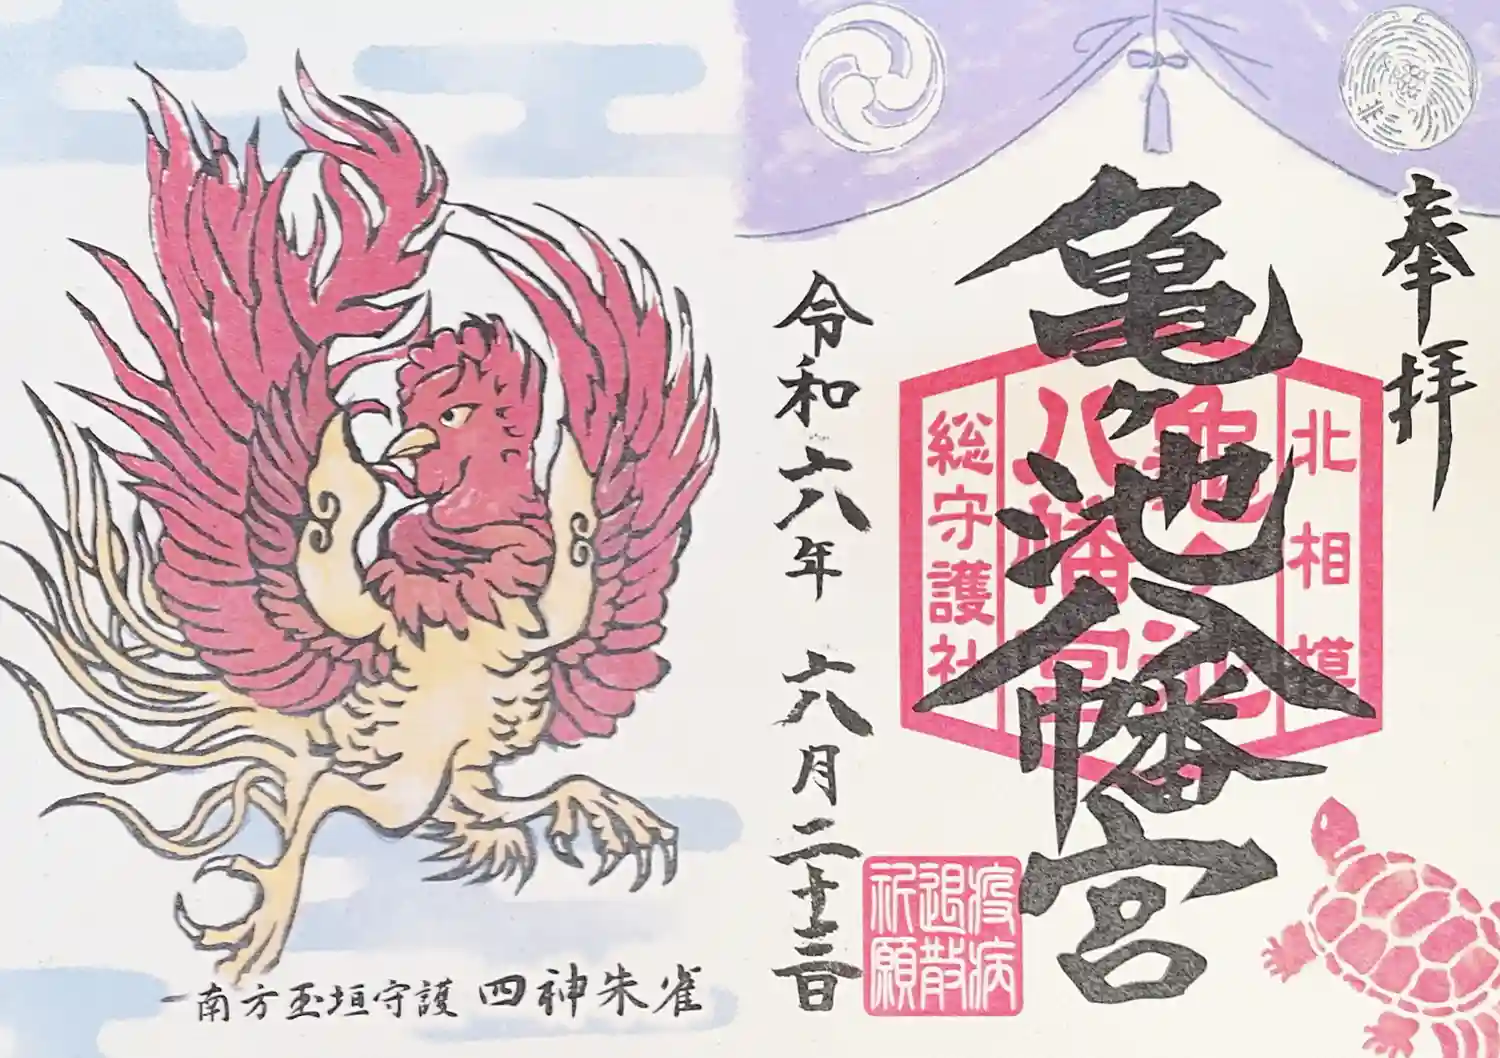 奉拝
亀ヶ池八幡宮
北相模
亀ヶ池
八幡宮
総守護社
令和六年 六月二十三日
疫病
退散
祈願
南方玉垣守護 四神朱雀